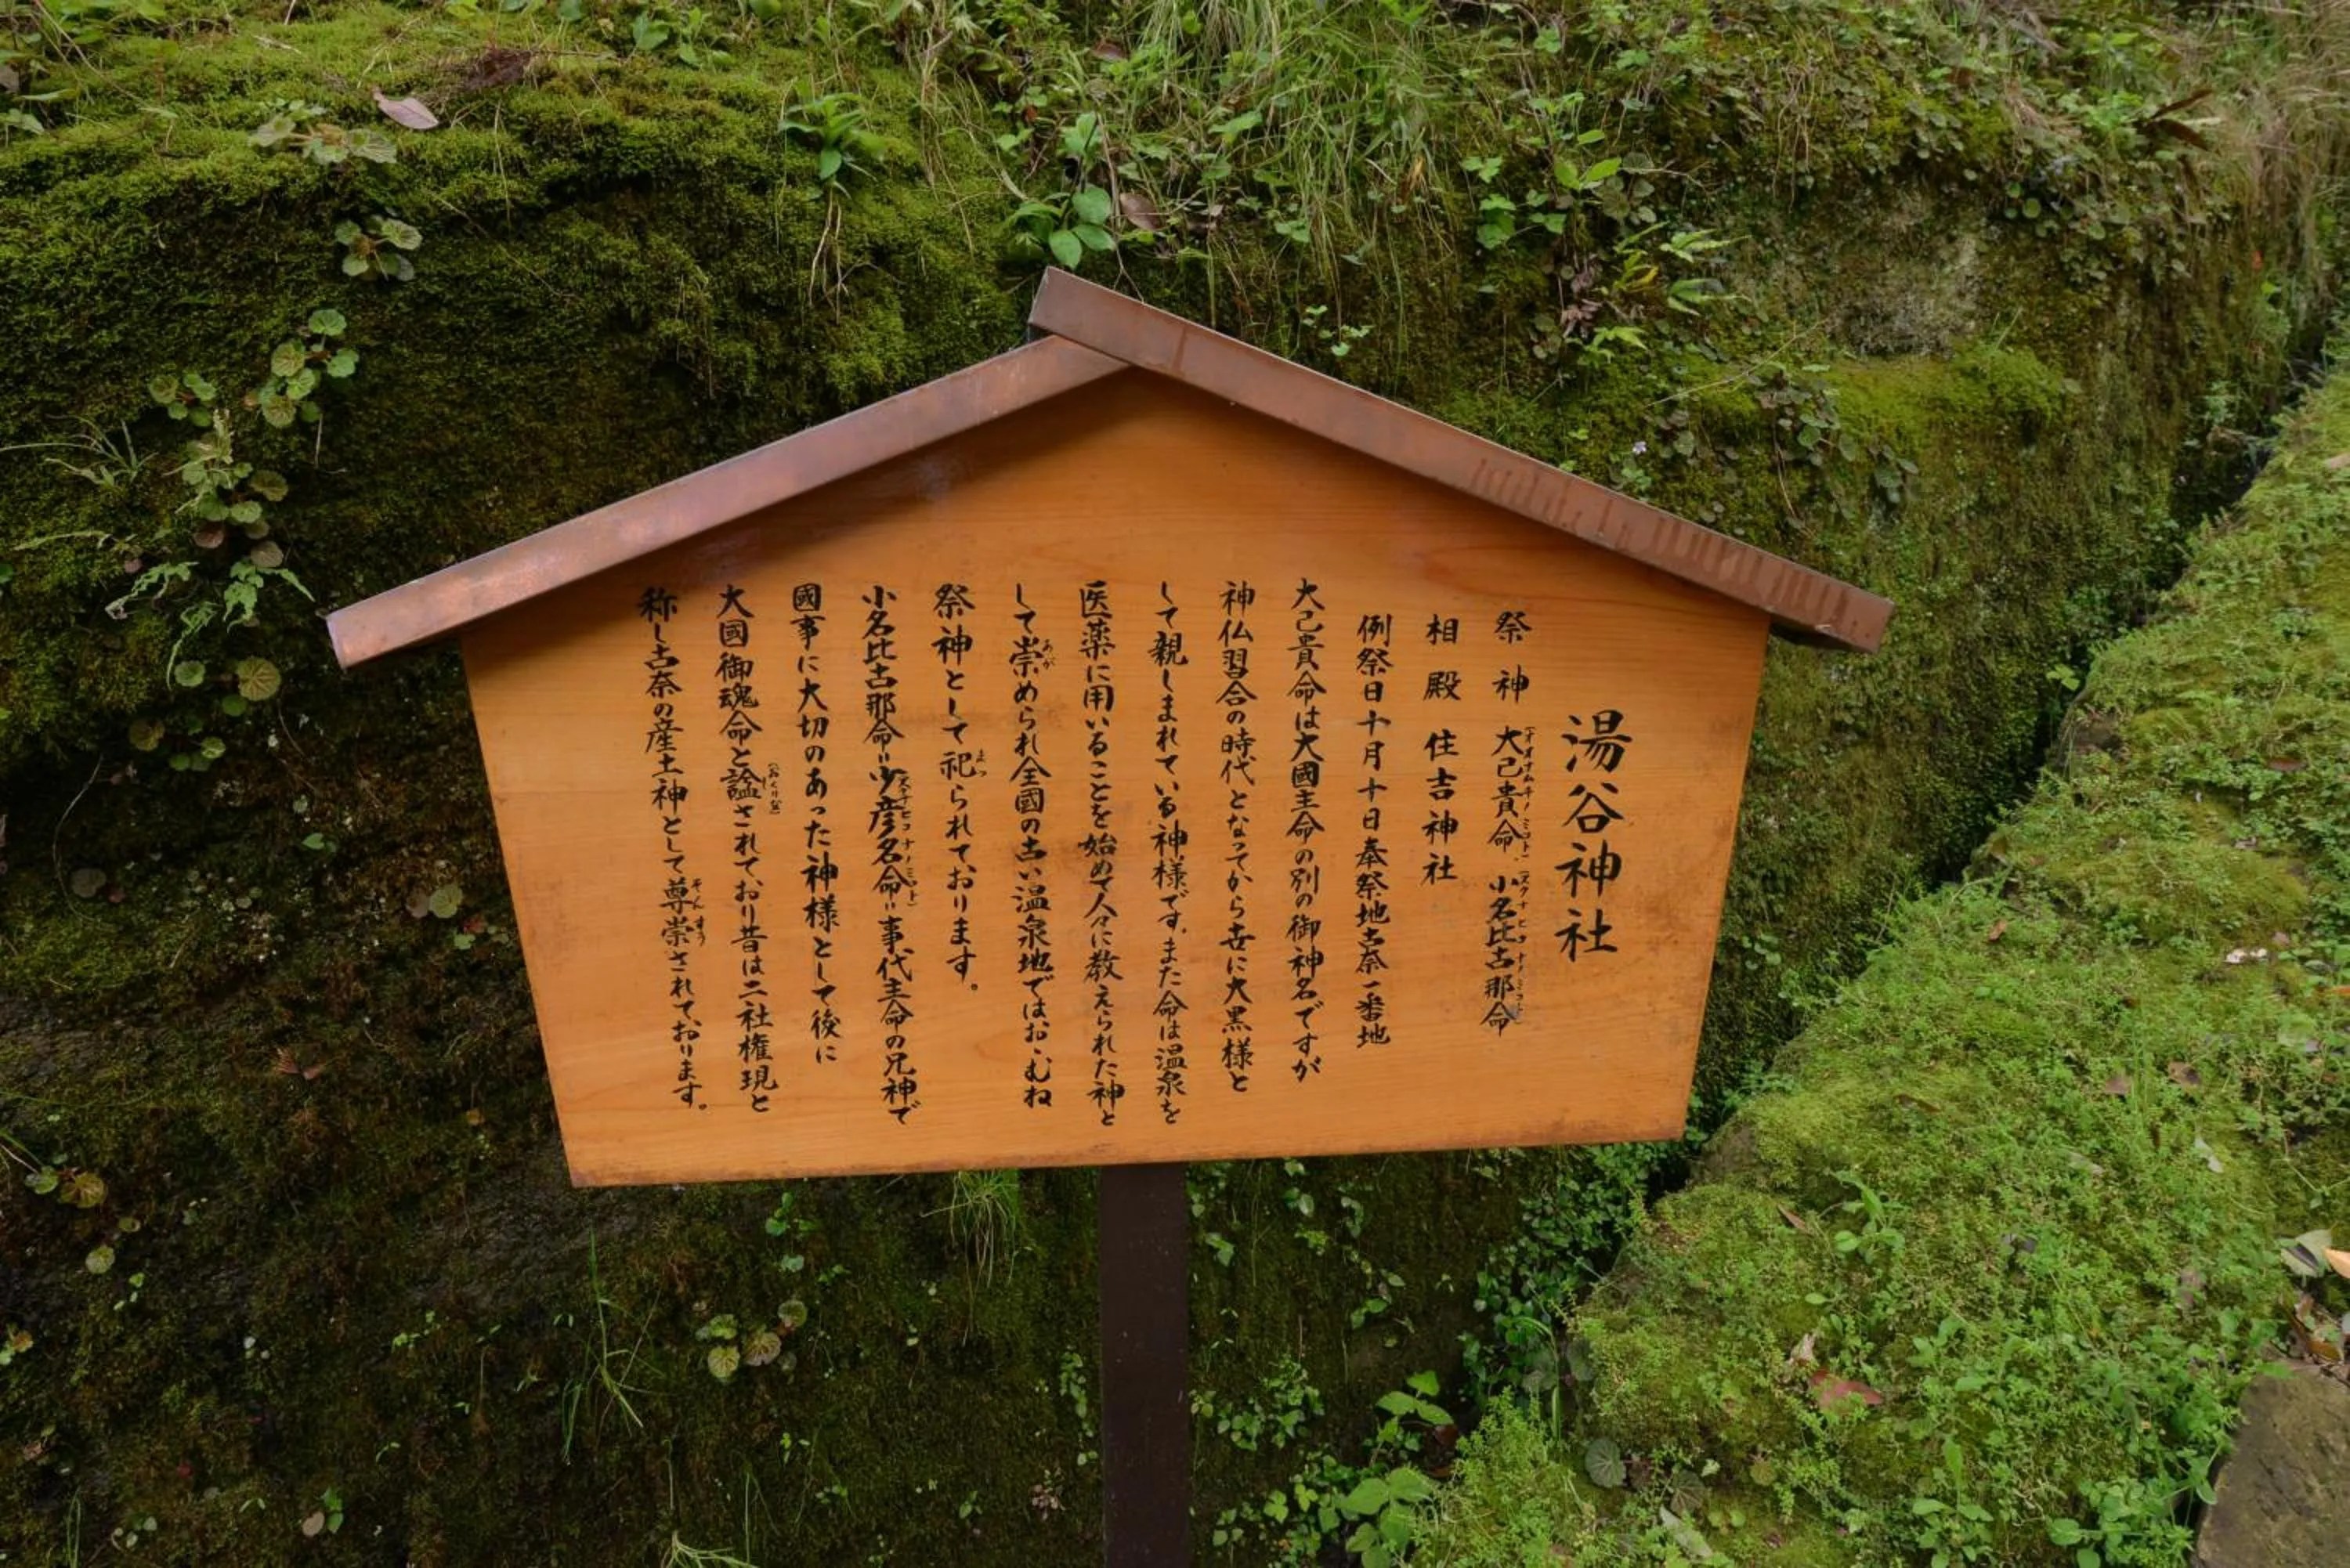 湯谷神社
祭神 大己貴命、小名比古那命
相殿 住吉神社
例祭日十月十日奉祭地古奈一番地
大己貴命は大國主命の別の御神名ですが
神仏習合の時代となってから世に大黒様と
して親しまれている神様です。また命は温泉を
医薬に用いることを始めて人々に教えられた神と
して崇められ全國の古い温泉地ではおゝむね
祭神として祀られております。
小名比古那命＝少彦名命＝事代主命の兄神で
國事に大切のあった神様として後に
大國御魂命と諡されており昔は二社権現と
称し古奈の産土神として尊崇されております。